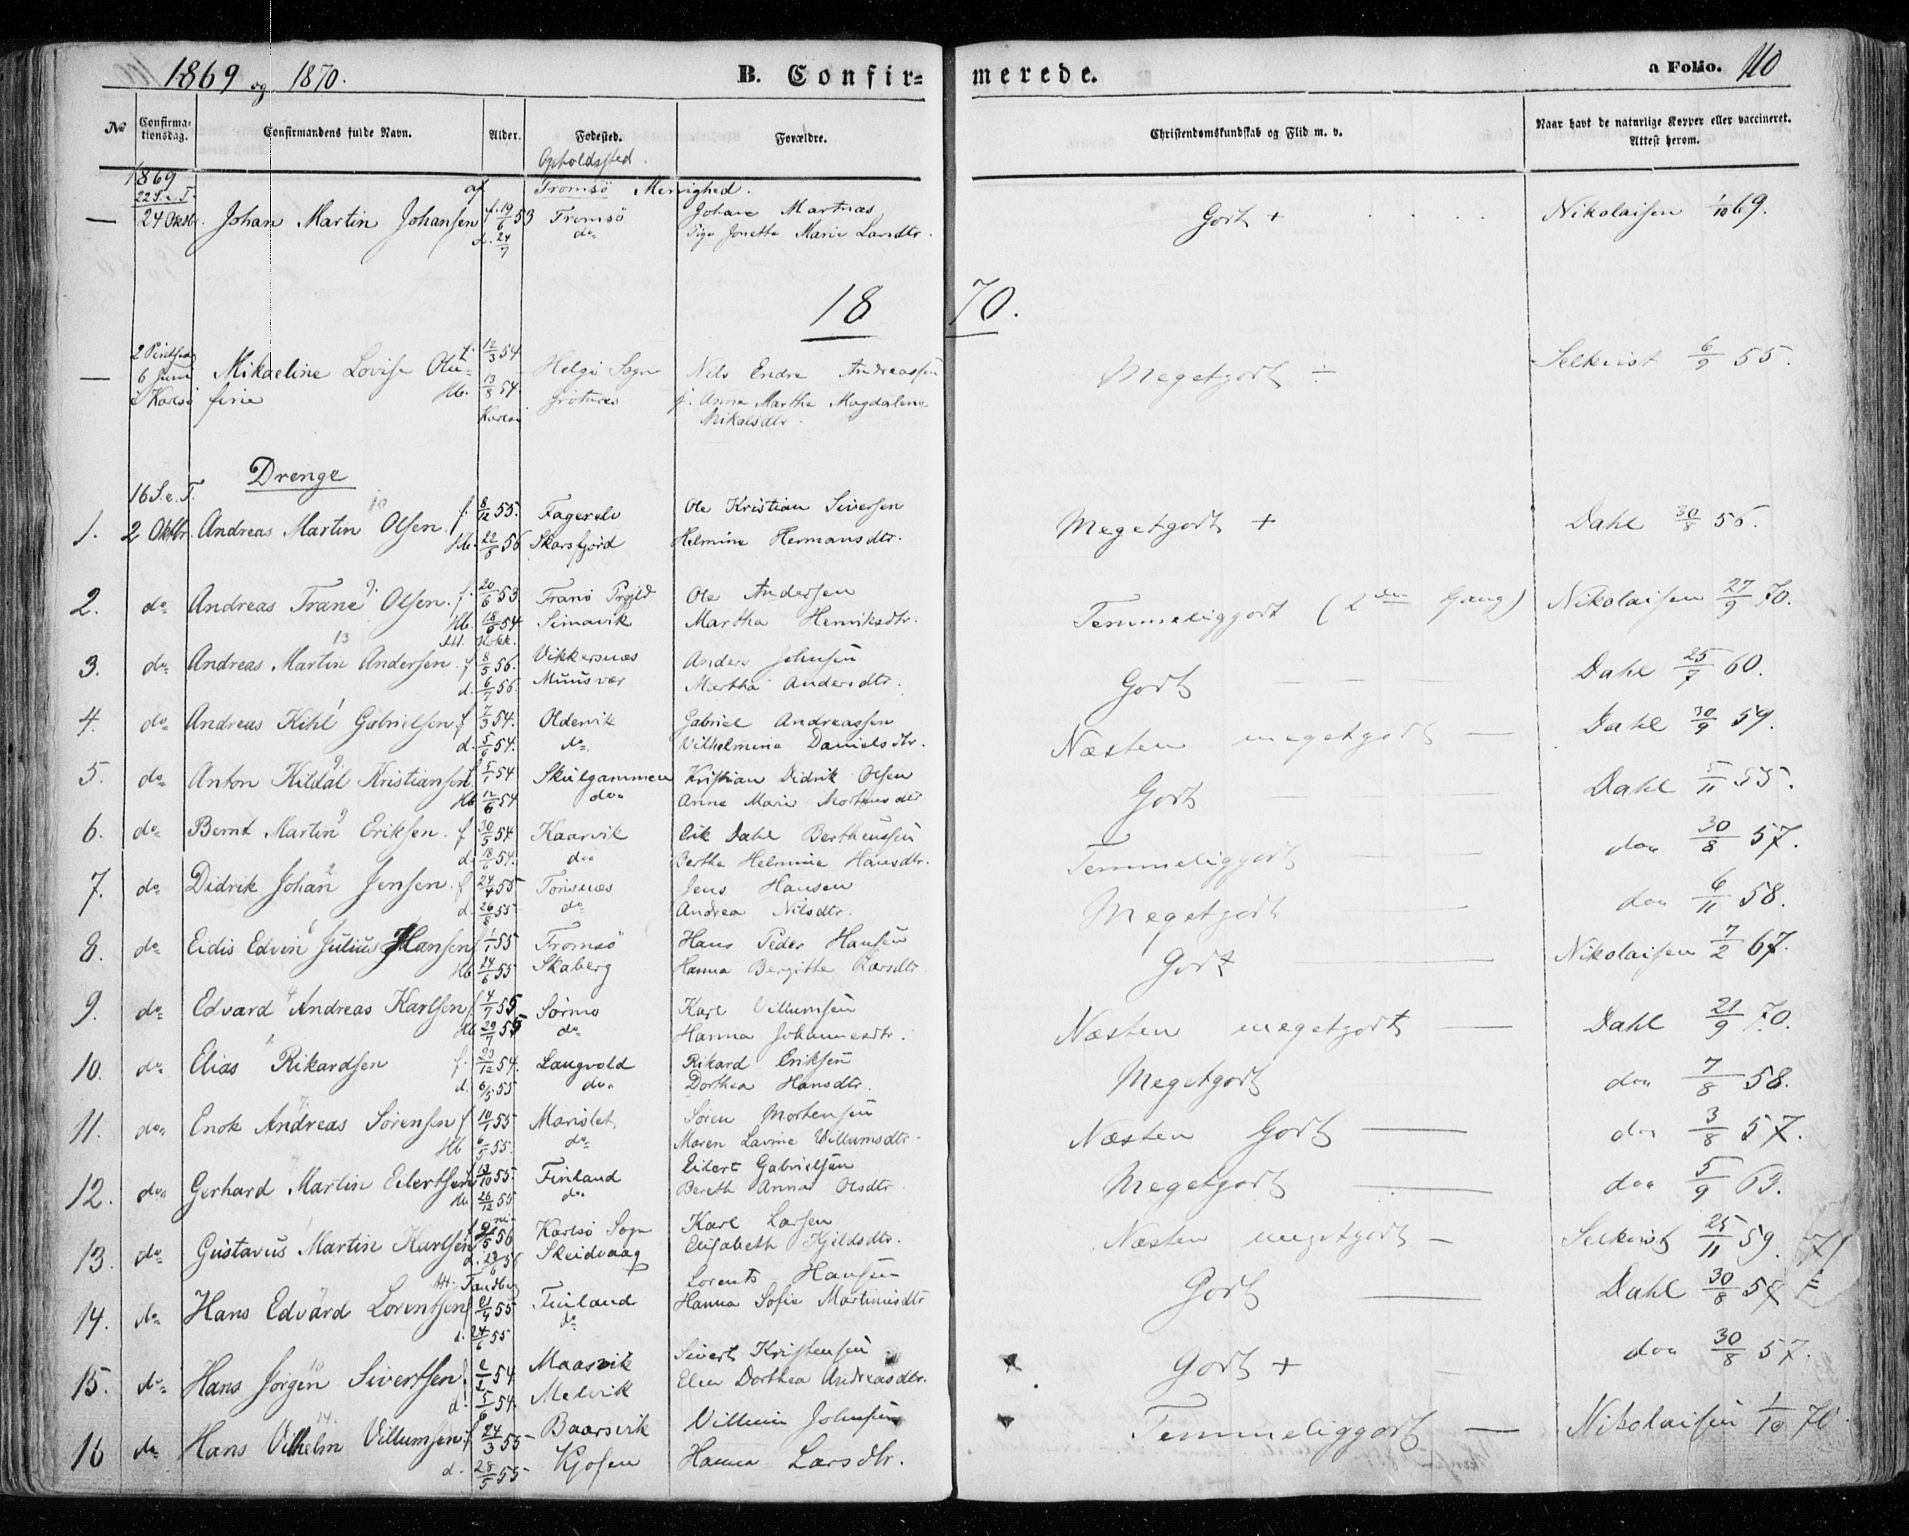 1869 og 1870.
B. Confir-
merede.
a Folio. 110
No
Confirmationsdag.
Confirmandens fulde Navn.
Alder.
Fødested.
Opholdssted.
Forældre.
Christendomskundskab og Flid m. v.
Naar havt de naturlige Kopper eller vaccineret.
Attest herom.
1869
22 S. e. T. af Tromsö Menighed.
— 24 Oktbr. Johan Martin Johansen f. 19/6 53 Tromsö Johan Martnæs Godt + Nikolaisen 1/10 69.
d. 24/7 do Pige Jonetta Marie Larsdtr.
18 70.
2 Pintsed f. 12/3 54
— 6 Juni Mikaeline Lovise Olu- Helgö Sogn Nils Endre Andreassen Megetgodt ÷ Selkvist 6/9 55.
i Karlsö fine Hb. 13/8 54. Grötnæs p. Anne Martha Magdalena
Karlsö Nikolsdtr.
Drenge
16 S. e. T.
1. 2 Oktbr. Andreas Martin Olsen f. 8/12 55. Fagerelv Ole Kristian Siversen Megetgodt + Dahl 30/8 56.
Hb. 22/5 56 Skarsfjord Helmine Hermansdtr.
2. do Andreas Trane Olsen f. 20/6 53 Tranö Prgjld Ole Andersen Temmeliggodt (2den Gang) Nikolaisen 27/9 70.
Hb. 18/6 54 Simavik Martha Henriksdtr.
3. do Andreas Martin Andersen f. 8/5 56. Vikkersnæs Anders Johnsen Godt — Dahl 25/7 60.
d. 6/7 56. Muusvær Martha Andersdtr.
4. do Andreas Kihl Gabrielsen f 7/3 54. Oldervik Gabriel Andreassen Næsten megetgodt — Dahl 30/9 59.
d. 5/6 54. do Vilhelmine Danielsdtr.
5. do Anton Kildal Kristiansen f 5/1 54 Skulgammen Kristian Didrik Olsen Godt — Dahl 5/11 55.
Hb 12/6 54 do Anne Marie Mortensdtr
6. do Bernt Martin Eriksen f 30/5 54 Kaarvik Erik Dahl Bertheussen Temmeliggodt — do 30/8 57.
d. 18/ 54. do Berthe Helmine Hansdtr.
7. do Didrik Johan Jensen f 24/4 55 Tönsnæs Jens Hansen Megetgodt — do 6/11 58.
d. 26/8 55 do Andrea Nilsdtr.
8. do Eidis Edvin Julius Hansen f 1/1 55 Tromsö Hans Peder Hansen Godt — Nikolaisen 7/2 67.
Hb 24/6 55 Skaberg Hanna Bergitte Larsdtr
9. do Edvard Andreas Karlsen f 4/7 55 Sörmo Karl Villumsen Næsten megetgodt — Dahl 21/9 70.
Hb 29/7 55 do Hanna Johannesdtr.
10. do Elias Rikardsen f. 23/12 54. Langvold Rikard Eriksen Megetgodt do 7/8 58.
d. 6/5 55 do Dorthea Hansdtr.
11. do Enok Andreas Sörensen f 10/1 55 Marislet Sören Mortensen Næsten Godt — do 3/8 57.
Hb 6/5 55. do Maren Lavine Villumsdtr.
12. do Gerhard Martin Eilertsen 13/10 55 Finland Eilert Gabrielsen Megetgodt — do 5/9 63.
Hb. 26/12 55 do Bereth Anna Olsdtr.
13. do Gustavus Martin Karlsen 9/5 56 Karlsö Sogn Karl Larsen Næsten megetgodt — Selkvist 25/11 59.
Skeidvaag Elisabeth Kjeldsdtr.
14. do Hans Edvard Lorentsen f 21/4 55 Finland Lorents Hansen Godt — Dahl 30/8 57
d. 24/6 55 do Hanna Sofie Martinusdtr
15. do Hans Jörgen Sivertsen f 2/2 54 Maasvik Sivert Kristensen Godt + — do 30/8 57.
d. 5/ 54. Melvik Elen Dorthea Andreasdtr.
16 do Hans Vilhelm Villumsen f 24/3 55 Baarsvik Villum Johnsen Temmeliggodt — Nikolaisen 1/10 70
d. 28/5 55 Kjosen Hanna Larsdtr.